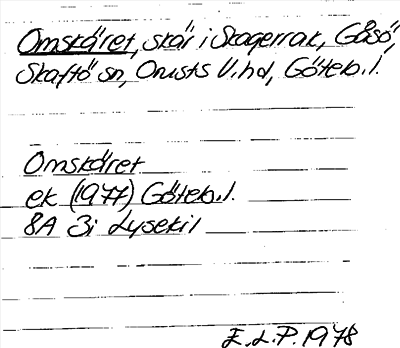 Omskäret, skär i Skagerrak, Gåsö,
Skaftö sn, Orusts V. hd, Göteb. l.
Omskäret
ek (1977) Göteb. l.
8A 3i Lysekil
E.L.P. 1978